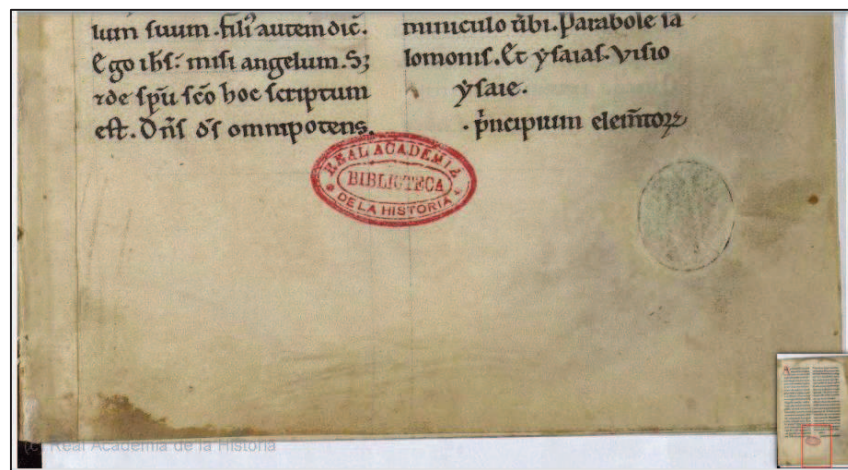 lium suum. filiꝰ autem dic̄.
Ego ih̄s: misi angelum. Sꝫ
⁊de sp̄u sc̄o hoc scriptum
est. Dn̄s ds̄ omnipotens.
miniculo t̄bi. Parabole sa
lomonis. Et ẏsaias. Visio
ẏsaie.
· p̄ncipium elem̄toꝝ
REAL ACADEMIA
BIBLIOTECA
DE LA HISTORIA
(c) Real Academia de la Historia